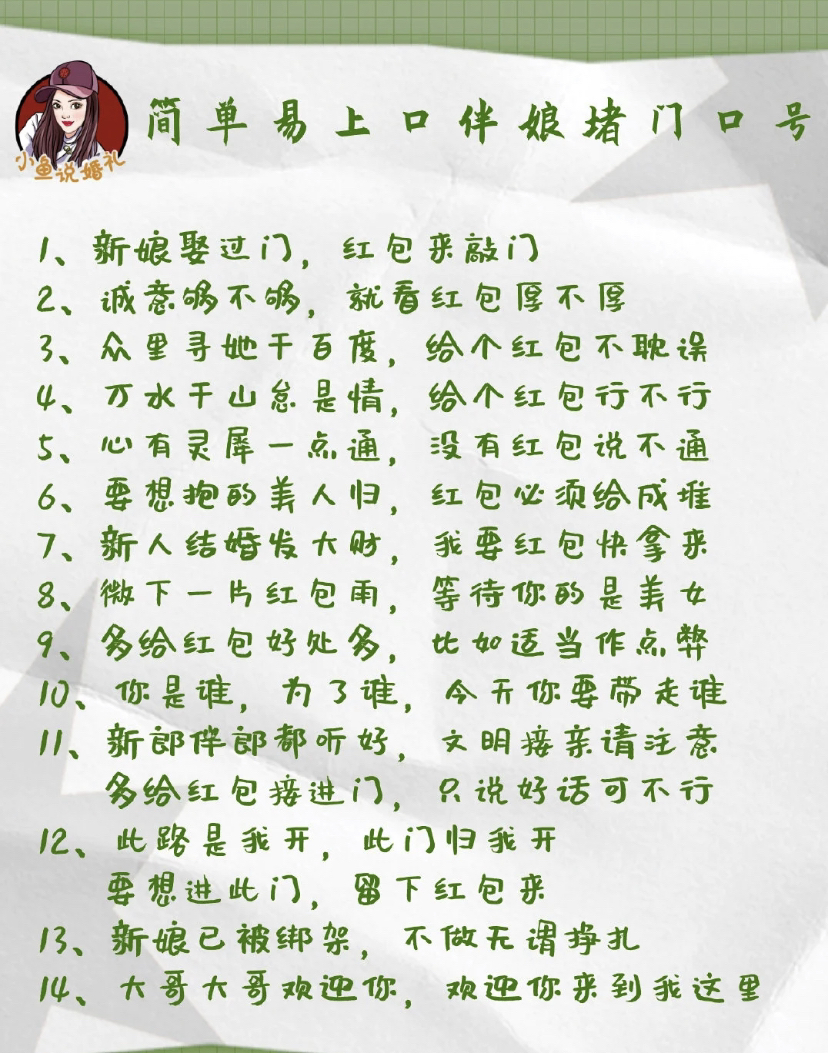 简单易上口伴娘堵门口号
小鱼说婚礼
1、新娘娶过门，红包来敲门
2、诚意够不够，就看红包厚不厚
3、众里寻她千百度，给个红包不耽误
4、万水千山怠是情，给个红包行不行
5、心有灵犀一点通，没有红包说不通
6、要想抱的美人归，红包必须给成堆
7、新人结婚发大财，我要红包快拿来
8、微下一片红包雨，等待你的是美女
9、多给红包好处多，比如适当作点弊
10、你是谁，为了谁，今天你要带走谁
11、新郎伴郎都听好，文明接亲请注意
多给红包接进门，只说好话可不行
12、此路是我开，此门归我开
要想进此门，留下红包来
13、新娘已被绑架，不做无谓挣扎
14、大哥大哥欢迎你，欢迎你来到我这里